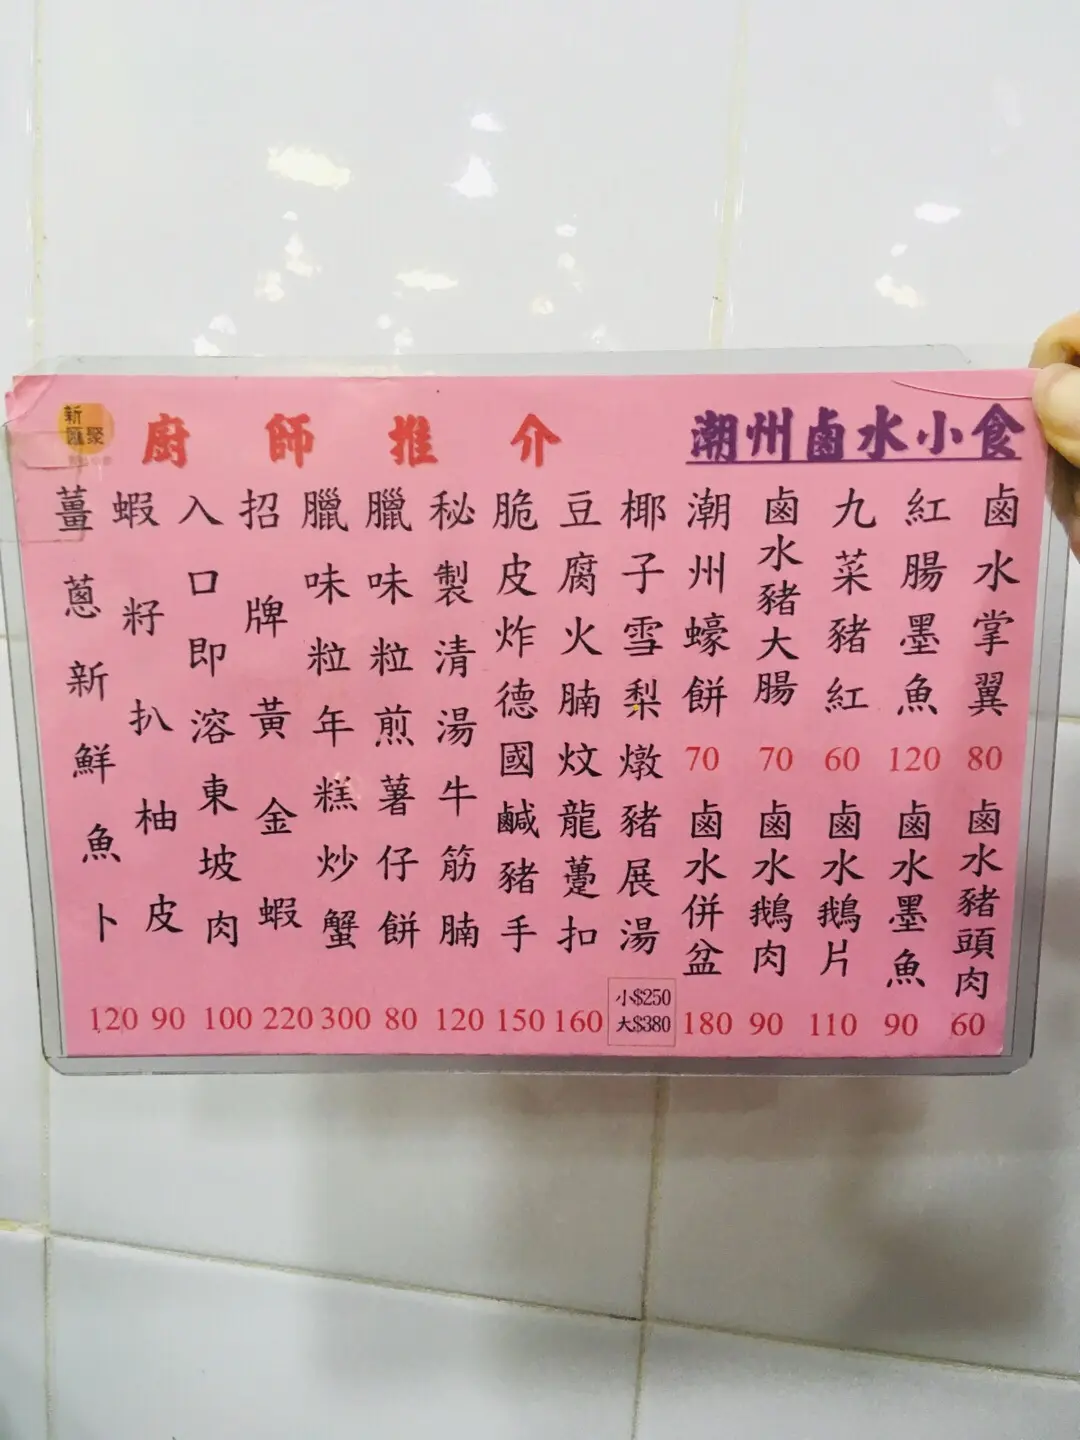 新
匯聚
廚師推介
潮州鹵水小食
鹵水掌翼
80
紅腸墨魚
120
九菜豬紅
60
鹵水豬大腸
70
潮州蠔餅
70
鹵水豬頭肉
60
鹵水墨魚
90
鹵水鵝片
110
鹵水鵝肉
90
鹵水併盆
180
椰子雪梨燉豬展湯
小$250
大$380
豆腐火腩炆龍躉扣
160
脆皮炸德國鹹豬手
150
秘製清湯牛筋腩
120
臘味粒煎薯仔餅
80
臘味粒年糕炒蟹
300
招牌黃金蝦
220
入口即溶東坡肉
100
蝦籽扒柚皮
90
薑蔥新鮮魚卜
120